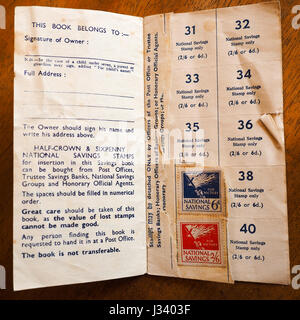 THIS BOOK BELONGS TO :—
Signature of Owner :
N.B.—In the case of a child under seven, a parent or
guardian should sign, adding "For the child's name."
Full Address :
The Owner should sign his name and
write his address above.
HALF-CROWN & SIXPENNY
NATIONAL SAVINGS STAMPS
for insertion in this Savings book
can be bought from Post Offices,
Trustee Savings Banks, National Savings
Groups and Honorary Official Agents.
The spaces should be filled in numerical
order.
Great care should be taken of this
book, as the value of lost stamps
cannot be made good.
Any person finding this book is
requested to hand it in at a Post Office.
The book is not transferable.
Stamps may be detached ONLY by Officers of the Post Office or Trustee
Savings Banks; Honorary Official Agents.
31
National Savings
Stamp only
(2/6 or 6d.)
32
National Savings
Stamp only
(2/6 or 6d.)
33
National Savings
Stamp only
(2/6 or 6d.)
34
National Savings
Stamp only
(2/6 or 6d.)
35
National Savings
Stamp only
(2/6 or 6d.)
36
National Savings
Stamp only
(2/6 or 6d.)
NATIONAL
SAVINGS 6D
38
National Savings
Stamp only
(2/6 or 6d.)
NATIONAL
SAVINGS 2/6
40
National Savings
Stamp only
(2/6 or 6d.)
alamy
Image ID: J3403F
www.alamy.com